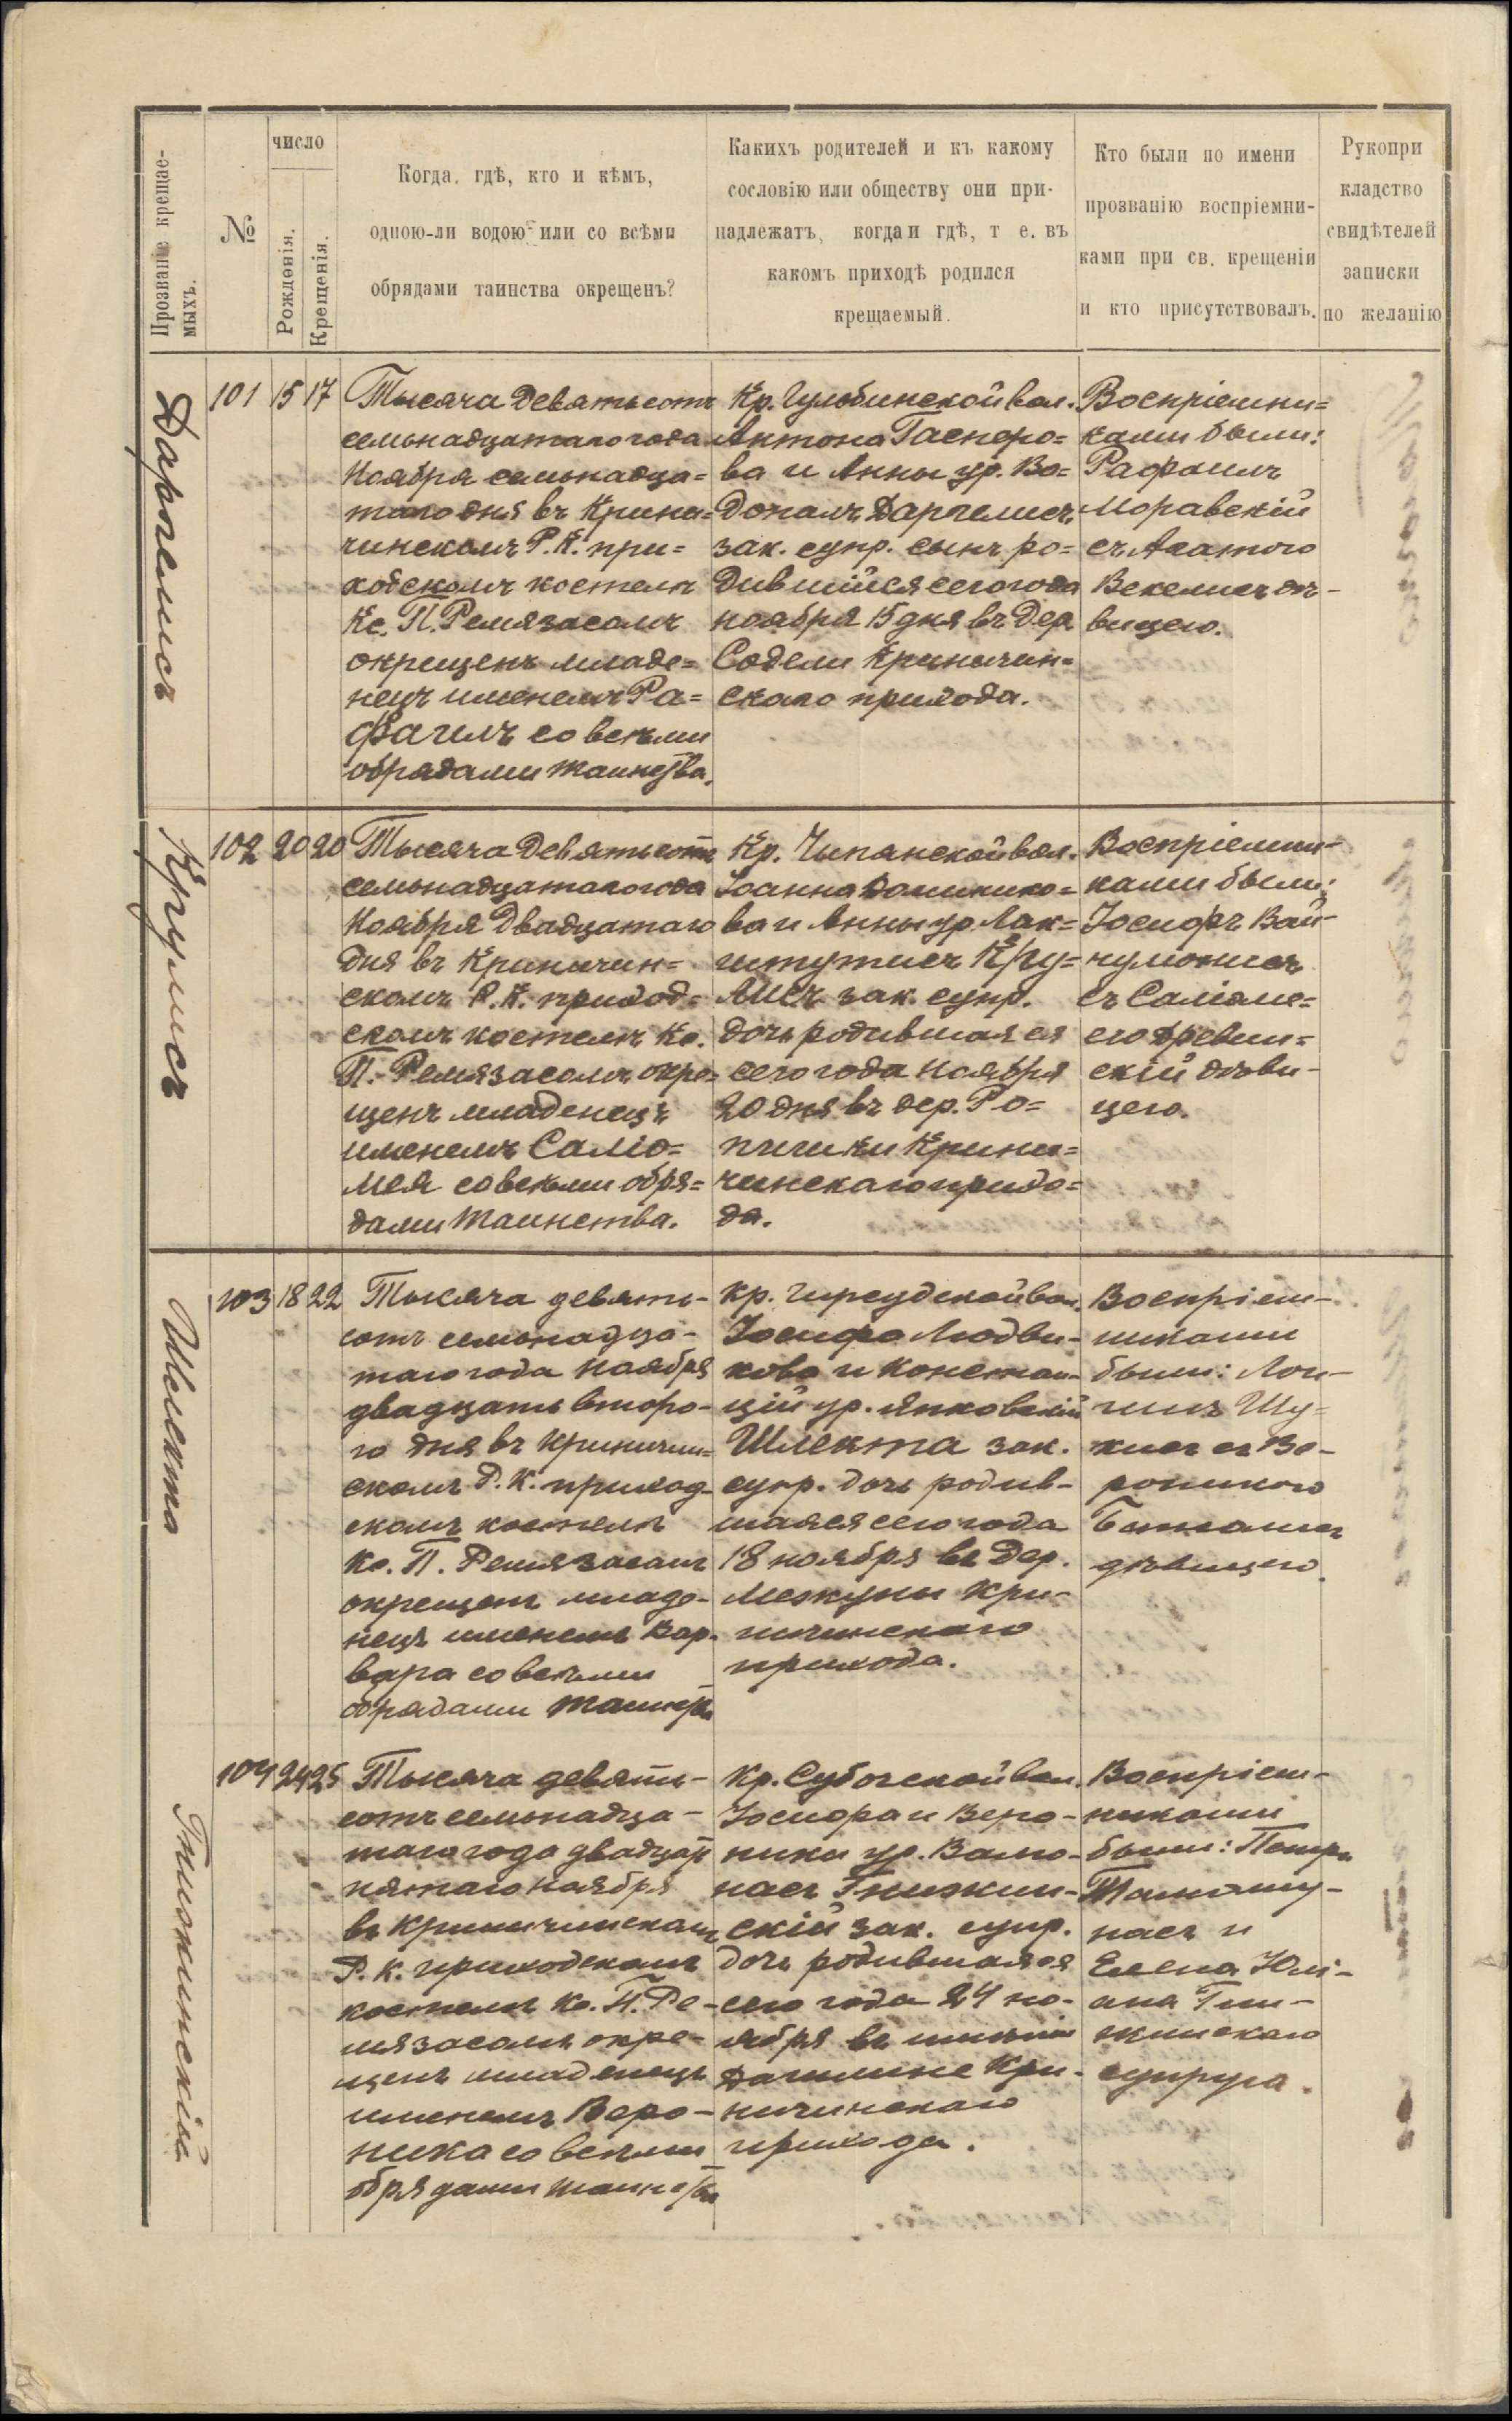 Прозваніе крещае-
мыхъ.
№
число
Рожденія.
Крещенія.
Когда, гдѣ, кто и кѣмъ,
одною-ли водою или со всѣми
обрядами таинства окрещенъ?
Какихъ родителей и къ какому
сословію или обществу они при-
надлежатъ, когда и гдѣ, т е. въ
какомъ приходѣ родился
крещаемый.
Кто были по имени
прозванію воспріемни-
ками при св. крещеніи
и кто присутствовалъ.
Рукопри
кладство
свидѣтелей
записки
по желанію
Даргелисъ
101 15 17
Тысяча девятьсотъ
семьнадцатаго года
Ноября семьнадца=
таго дня въ Крини=
чинскомъ Р. К. при=
ходскомъ костелѣ
Кс. П. Ремязасомъ
окрещенъ младе=
нецъ именемъ Ра=
фаилъ со всѣми
обрядами таинства.
Кр. Гульбинской вол.
Антона Гаспоро=
ва и Анны ур. Во=
доналъ Даргелисъ
зак. супр. сынъ ро=
дившійся сего года
ноября 15 дня въ дер.
Содели Криничин=
скаго прихода.
Воспріемни=
ками были:
Рафаилъ
Моравскій
съ Агатою
Векелисъ дѣ-
вицею.
Кргулисъ
102 20 20
Тысяча девятьсотъ
семьнадцатаго года
Ноября двадцатаго
дня въ Криничин=
скомъ Р. К. приход=
скомъ костелѣ Кс.
П. Ремязасомъ окре=
щенъ младенецъ
именемъ Саліо=
мея со всѣми обря=
дами таинства.
Кр. Чипянской вол.
Іоанна Доминико=
ва и Анны ур. Лак=
штутисъ Кргу=
лисъ зак. супр.
дочь родившаяся
сего года Ноября
20 дня въ дер. Ро=
пигики Крини=
чинскаго прихо=
да.
Воспріемни-
ками были:
Іосифъ Вай-
нулионисъ
съ Саліоме=
ею Древин=
скій дѣви-
цею.
Шлекта
103 18 22
Тысяча девять-
сотъ семьнадца-
таго года Ноября
двадцать второ-
го дня въ Криничин=
скомъ Р. К. приход-
скомъ костелѣ
Кс. П. Ремязасомъ
окрещенъ младе-
нецъ именемъ Вар-
вара со всѣми
обрядами таинства
Кр. Гирсудской вол.
Іосифа Людви-
кова и Констан-
ціи ур. Янковскій
Шлекта зак.
супр. дочь родив-
шаяся сего года
18 ноября въ дер.
Межуны Кри-
ничинскаго
прихода.
Воспріем-
никами
были: Лон-
гинъ Шу-
кисъ съ Ве-
роникою
дѣвицею.
Гнижинскій
104 24 25
Тысяча девять-
сотъ семьнадца-
таго года двадцать
пятаго Ноября
въ Криничинскомъ
Р. К. приходскомъ
костелѣ Кс. П. Ре-
мязасомъ окре-
щенъ младенецъ
именемъ Веро-
ника со всѣми
обрядами таинства
Кр. Суботской вол.
Іосифа и Веро-
ники ур. Вало-
насъ Гнижин-
скій зак. супр.
дочь родившаяся
сего года 24 но-
ября въ имѣніи
Дагилине Кри-
ничинскаго
прихода.
Воспріем-
никами
были: Петръ
Тамошу-
насъ и
Елена Юлі-
ана Гни-
жинскаго
супруга.